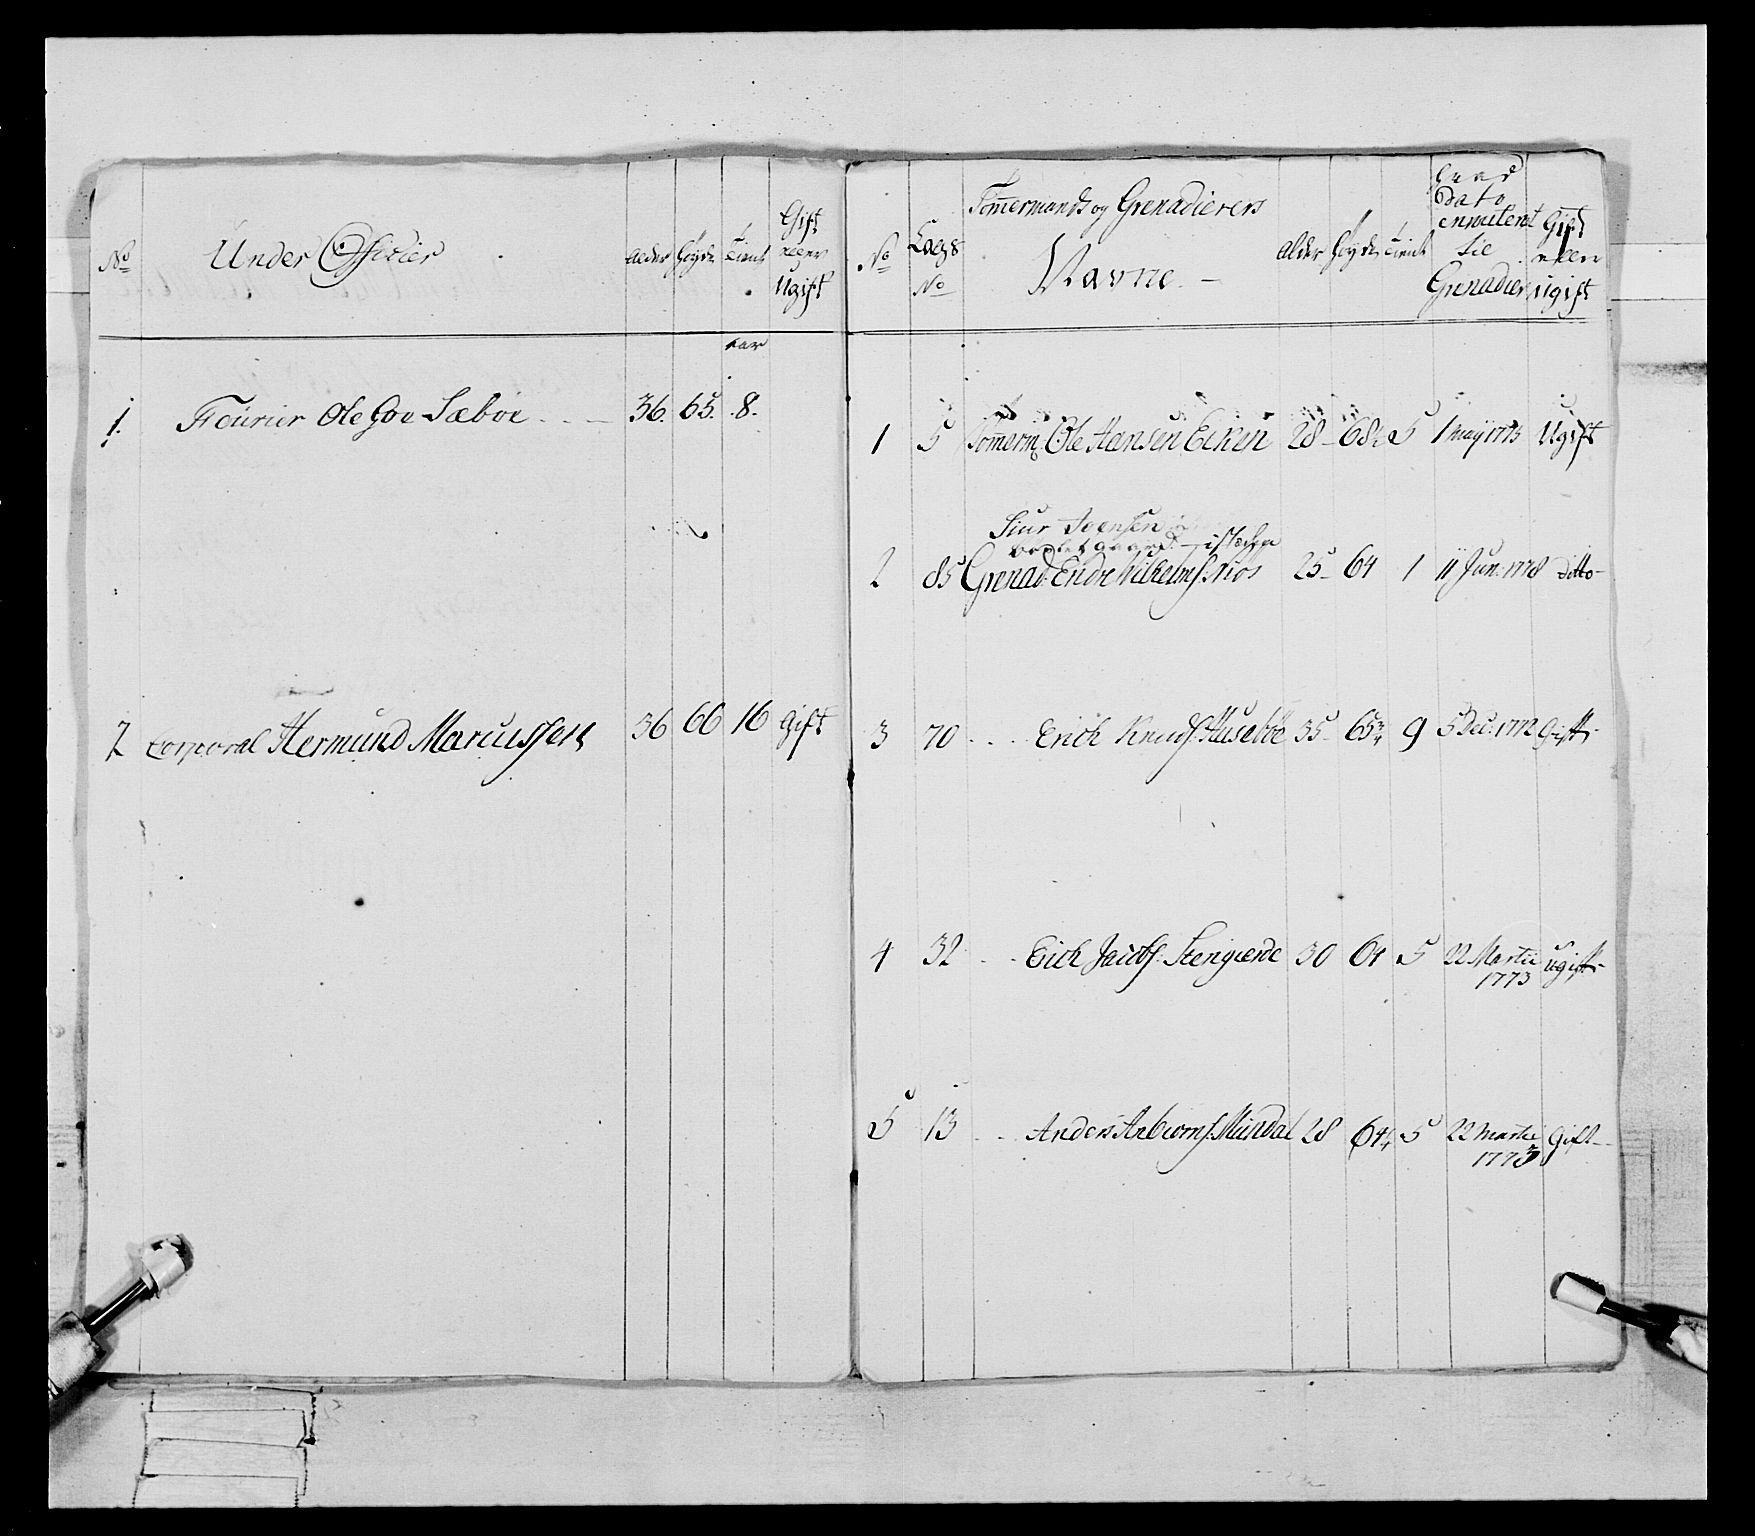 No Under Officier alder høyde tient Gift eller Ugift
aar
1. Fourier Ole Goe Sæboe 36. 65. 8.
2 Corporal Hermund Marcussen 36 66 16 gift
No Laegs No Tømermands og Grenadierers Navne. alder høyde tient dato til Grenadier Gift eller ugift
1 5 Tømerm: Ole Hansen Eiken 28 68½ 5 1 may 1773 Ugift
Siur Joensen
2 85 Grenad: Endre Vilhelms: 25 64 1 11 Jun: 1778 ditto
3 70 Erich Knuds: Husebøe 35 65¾ 9 5 Dec: 1772 Gift
4 32 Erich Jacobs: Stengierde 30 64 5 22 Martii 1773 ugift
5 13 Anders Anbiørns: Mundal 28 64¼ 5 22 Martii 1773 Gift